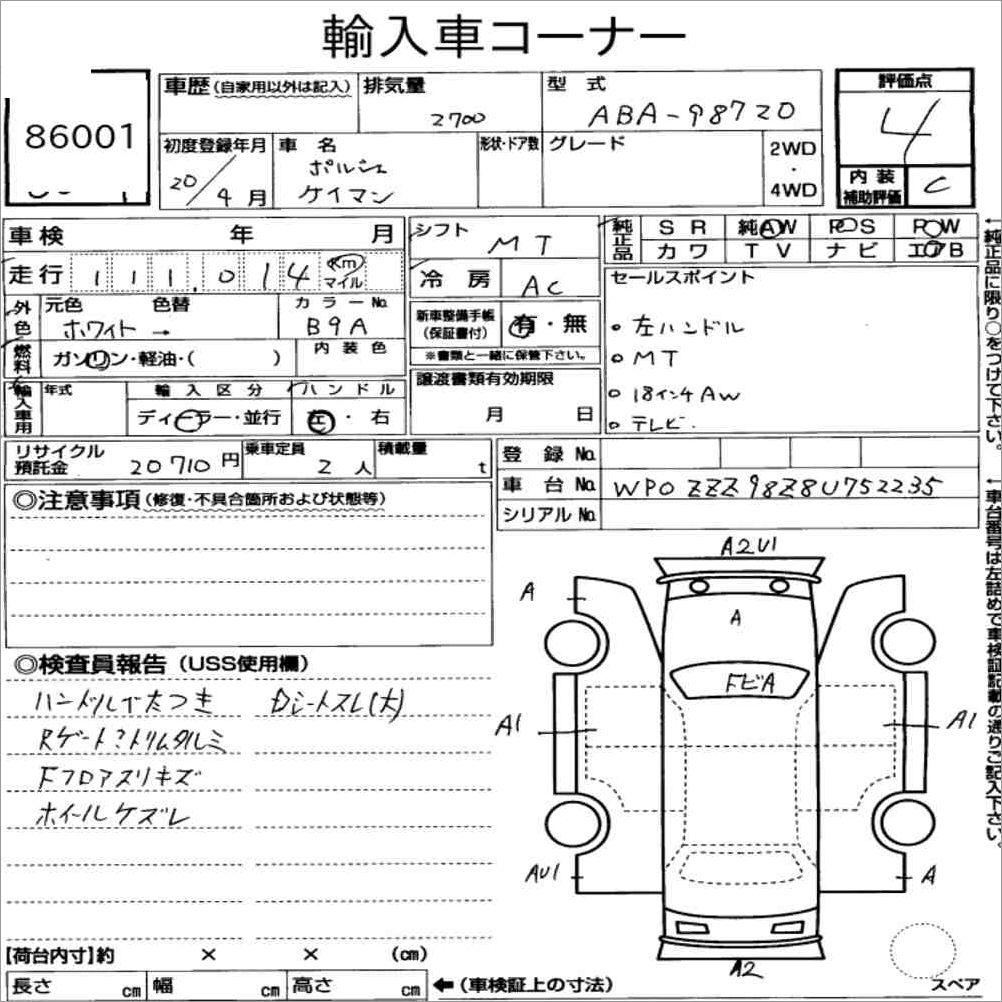 輸入車コーナー
86001
車歴(自家用以外は記入) 排気量 2700 型式 ABA-98720 評価点 4
初度登録年月 20/4月 車名 ポルシェ ケイマン 形状・ドア数 グレード 2WD・4WD 内装補助評価 C
車検 年 月 シフト MT 純正品 SR 純AW PS PW
カワ TV ナビ エアB
走行 111,014 Km マイル 冷房 AC セールスポイント
外色 元色 ホワイト → 色替 カラーNo. B9A 新車整備手帳(保証書付) 有・無 ・左ハンドル
燃料 ガソリン・軽油・( ) 内装色 ※書類と一緒に保管下さい。 ・MT
輸入車用 年式 輸入区分 ディーラー・並行 ハンドル 左・右 譲渡書類有効期限 月 日 ・18インチAW
・テレビ.
リサイクル預託金 20710円 乗車定員 2人 積載量 t 登録No.
車台No. WP0ZZZ98Z8U752235
シリアルNo.
◎注意事項(修復・不具合箇所および状態等)
◎検査員報告(USS使用欄)
ハンドルガタつき Dシートスレ(大)
Rゲート トリムタルミ
Fフロアスリキズ
ホイールケズレ
A2U1
A
A
FビA
A1
A1
AU1
A
A2
スペア
【荷台内寸】約 × × (cm)
長さ cm 幅 cm 高さ cm ←(車検証上の寸法)
←純正品に限り○をつけて下さい。
←車台番号は左詰めで車検証記載の通りご記入下さい。